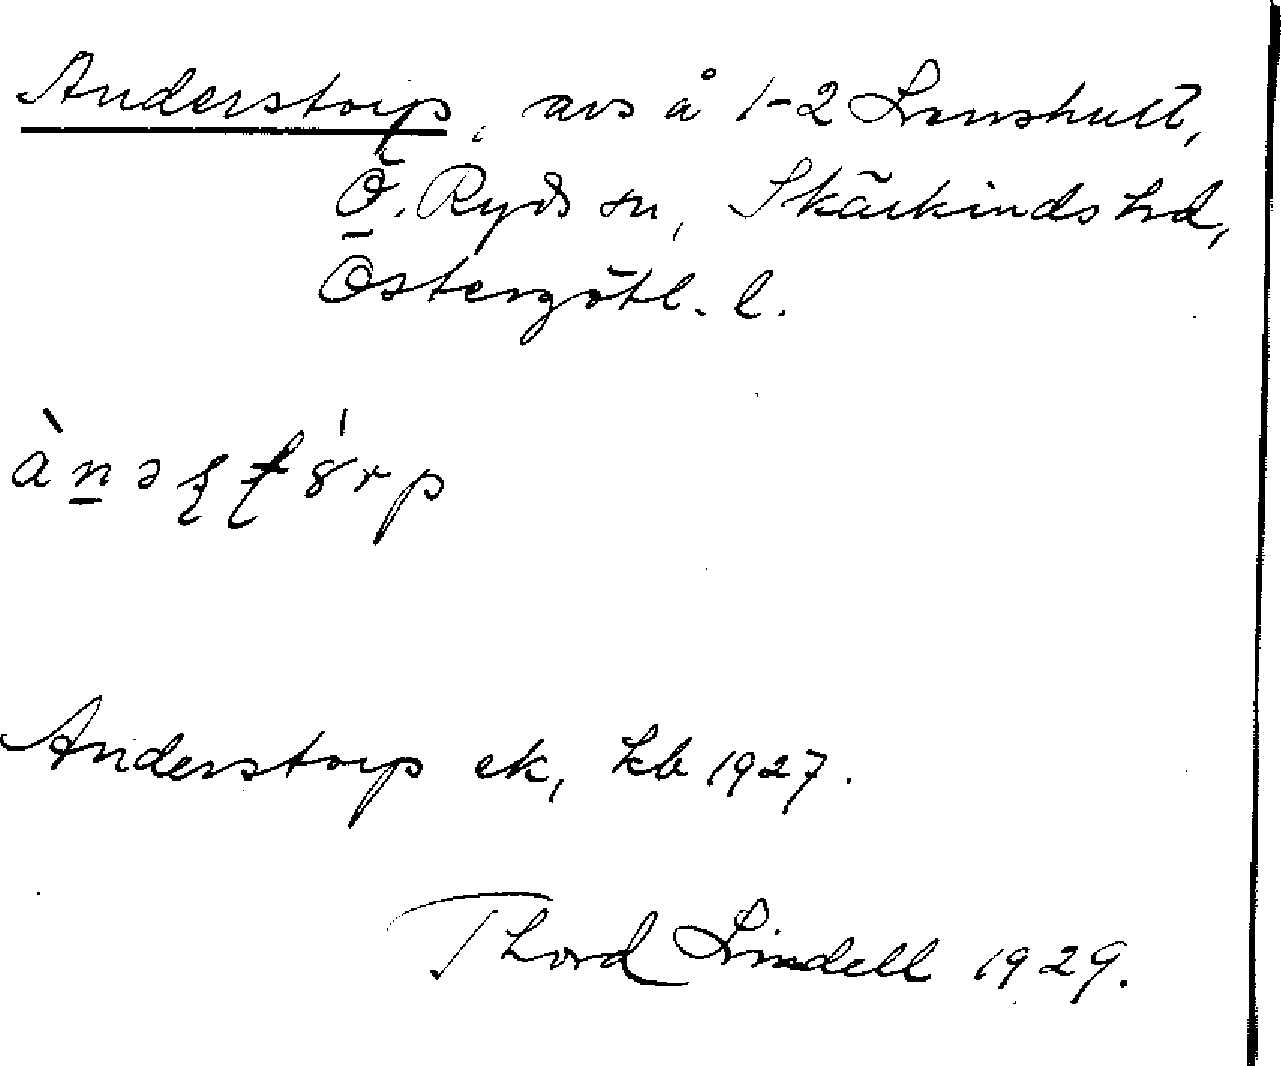 Anderstorp, avs å 1-2 Lenshult,
Ö. Ryds sn, Skärkinds hd,
Östergötl. l.
Anderstorp ek, kb 1927.
Thord Lindell 1929.